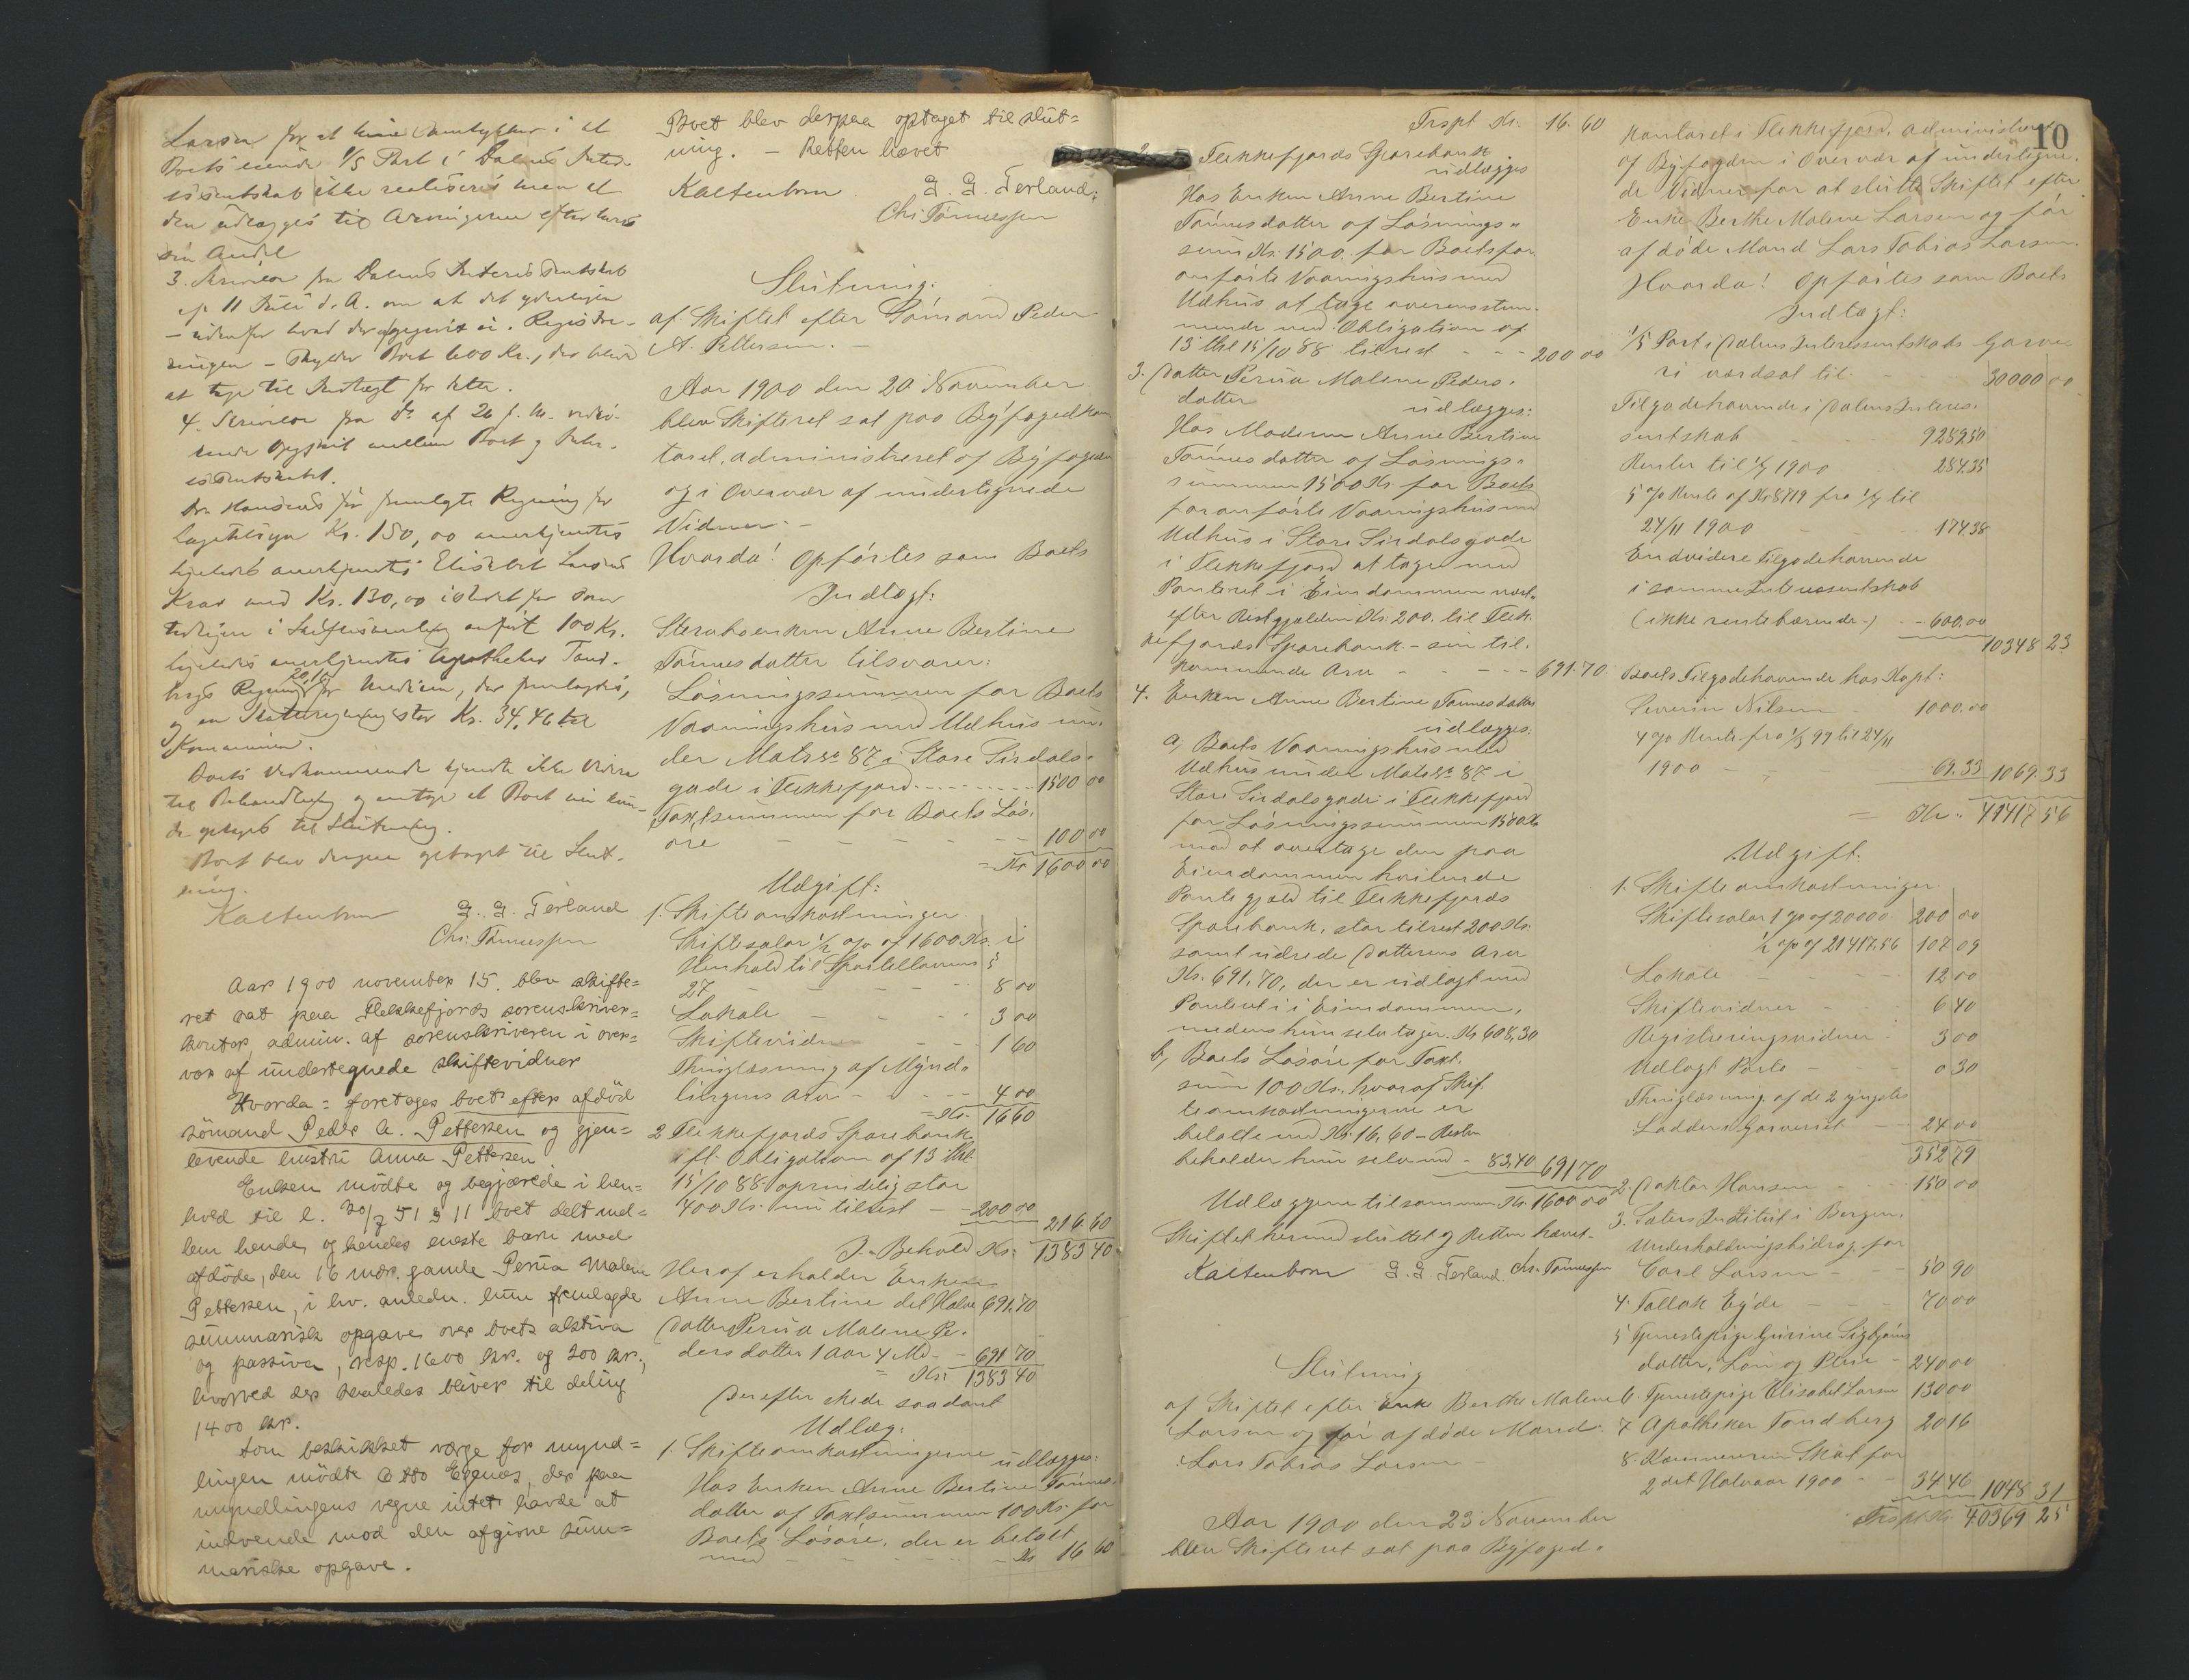 Larsen for at hans Samtykker i at
Boets eiende 1/5 Part i Dalens Interes-
sentskab ikke realiseres men at
den udlægges til Arvingerne efter hvers
sin Andel
3. Skrivelse fra Dalens Interessentskab
af 11 d. A. om at det yderligere
- udenfor hvad der opgivet i Registre-
ringen - skylder Boet 600 Kr., der blev
at tage til Indtægt for dette.
4. Skrivelse fra do. af 26 f. M. vedrø-
rende Opgjør mellem Boet og Inter-
essentskabet.
Dr. Hansens fremlagte Regning for
Lægetilsyn Kr. 150,00 anerkjentes
ligeledes anerkjentes Elisabet Larsens
Krav med Kr. 130,00 istedet for som
tidligere i Skiftesamling anført 100 Kr.
ligeledes anerkjentes Apotheker Tand-
bergs Regning 20,16 for Medicin, der fremlagdes,
og en Skatteregning stor Kr. 34,46 til
Kommunen.
Boets Vedkommende kjendte ikke Videre
til Behandling og antog at Boet nu kun-
de optages til Slutning.
Boet blev derpaa optaget til Slut-
ning.
Kaltenborn G. G. Terland
Chr. Tønnessen
Aar 1900 november 15. blev skifte=
ret sat paa Flekkefjords sorenskriver=
kontor, admin. af sorenskriveren i over=
vær af undertegnede skiftevidner
Hvorda: foretoges boet efter afdød
sømand Peder A. Pettersen og gjen=
levende hustru Anna Pettersen.
Enken mødte og begjærede i hen=
hold til l. 30/7 51 § 11 boet delt mel=
lem hende og hendes eneste barn med
afdøde, den 16 mdr. gamle Perua Malene
Pettersen, i hv. anledn. hun fremlagde
summarisk opgave over boets aktiva
og passiva, resp. 1600 kr. og 200 kr.,
hvorved der saaledes bliver til deling
1400 kr.
Som beskikket værge for mynd=
lingen mødte Otto Egenes, der paa
myndlingens vegne intet havde at
indvende mod den afgivne sum=
mariske opgave.
Boet blev derpaa optaget til slut=
ning. - Retten hævet
Kaltenborn G. G. Terland.
Chr. Tønnessen
Slutning.
af Skiftet efter Sømand Peder
A. Pettersen. -
Aar 1900 den 20 November
blev Skifteret sat paa Byfogedkon
toret, administreret af Byfogden
og i Overvær af undertegnede
Vidner. -
Hvorda! Opførtes som Boets
Indtægt:
Stervboenken Anne Bertine
Tønnesdatter tilsvarer:
Løsningssummen for Boets
Vaaningshus med Udhus un-
der Matr No 87 i Store Sirdals-
gade i Flekkefjord 1500 00
Taxtsummen for Boets Løs-
øre - - - - - - 100 00
= Kr 1600 00
Udgift:
1. Skifteomkostninger
Skiftesalær 1/2 o/o af 1600 Kr. i
Henhold til Sportellovens §
27 - - - - - 8 00
Lokale - - - - 3 00
Skiftevidner - - - 1 60
Thinglæsning af Mynd-
lingens Arv - - - 4 00
= Kr. 16 60
2. Flekkefjords Sparebank
ifl. Obligation af 13 thl.
15/10 88. oprindelig stor
400 Kr. nu tilrest - 200 00
216 60
I Behold Kr: 1383 40
Heraf erholder Enken
Anne Bertine det Halve 691,70
Datter Perua Malene Pe-
dersdatter 1 Aar 4 Md. - 691 70
= Kr. 1383 40
Derefter skede saadant
Udlæg:
1. Skifteomkostningerne udlægges:
Hos Enken Anne Bertine Tønnes-
datter af Taxtsummen 100 Kr. for
Boets Løsøre, der er betalt
med - - - - Kr 16 60
Trspt Kr: 16. 60
2. Flekkefjords Sparebank
udlægges
Hos Enken Anne Bertine
Tønnesdatter af Løsnings-
sum Kr. 1500. for Boets for-
anførte Vaaningshus med
Udhus at tage overensstem-
mende med Obligation af
13 thl 15/10 88 tilrest - - - 200 00
3. Datter Perua Malene Peders-
datter
udlægges:
Hos Moderen Anne Bertine
Tønnesdatter af Løsnings-
summen 1500 Kr for Boets
foranførte Vaaningshus med
Udhus i Store Sirdalsgade
i Flekkefjord at tage med
Panteret i Eiendommen næst-
efter Restgjælden Kr. 200. til Flek-
kefjords Sparebank. - sin til-
kommende Arv - - - - 691.70.
4. Enken Anne Bertine Tønnesdatter
udlægges:
a, Boets Vaaningshus med
Udhus under Matr No 87 i
Store Sirdalsgade i Flekkefjord
for Løsningssummen 1500 Kr
mod at overtage den paa
Eiendommen hvilende
Pantegjæld til Flekkefjords
Sparebank, stor tilrest 200 Kr.
samt udrede Datterens Arv
Kr. 691,70, der er udlagt med
Panteret i Eiendommen,
medens hun selv tager Kr 608,30
b, Boets Løsøre for Taxt-
sum 100 Kr. hvoraf Skif-
teomkostningerne er
betalte med Kr. 16,60 - Resten
beholder hun selv med - 83,40 691 70
Udlæggene tilsammen Kr. 1600 00
Skiftet hermed sluttet og Retten hævet.
Kaltenborn G. G. Terland. Chr. Tønnessen
Slutning
af Skiftet efter Enke Berthe Malene
Larsen og før afdøde Mand
Lars Tobias Larsen -
Aar 1900 den 23 November
blev Skifteret sat paa Byfoged-
10
kontoret i Flekkefjord, administreret
af Byfogden i Overvær af undertegne-
de Vidner for at slutte Skiftet efter
Enke Berthe Malene Larsen og før
afdøde Mand Lars Tobias Larsen.
Hvorda! Opførtes som Boets
Indtægt:
1/5 Part i Dalens Interessentskabs Garve-
ri værdsat til - - 30000 00
Tilgodehavende i Dalens Interes-
sentskab - - 9289.50
Renter til 1/7 1900 284.35
5 o/o Rente af Kr 8719 fra 1/7 til
24/11 1900 - 174.38
Endvidere Tilgodehavende
i samme Interessentskab
(ikke rentebærende -) - 600.00
10348 23
Boets Tilgodehavende hos Kapt:
Severin Nilsen 1000.00
4 o/o Rente fra 1/3 99 til 24/11
1900 - - - 69.33 1069.33
= Kr. 41417 56
Udgift:
1. Skifteomkostninger.
Skiftesalær 1 o/o af 20000 200 00
1/2 o/o af 21417.56 107 09
Lokale - - - - 12 00
Skiftevidner - - 6 40
Registreringsvidner - 3 00
Udlagt Porto - - 0 30
Thinglæsning af de 2 yngstes
Lodder i Garveriet - - 24 00
352 79
2. Doktor Hansen - - 150 00
3. Institut i Bergen,
Underholdningsbidrag for
Carl Larsen - - 50 90
4. Tallak Eyde - - - 70 00
5 Tjenestepige Gurine
datter, Løn og Pleie - 240 00
6. Tjenestepige Elisabet Larsen 130 00
7 Apotheker Tandberg 20 16
8. Kommunen Skat for
2det Halvaar 1900 - - 34 46 1048 31
Trspt Kr. 40369 25